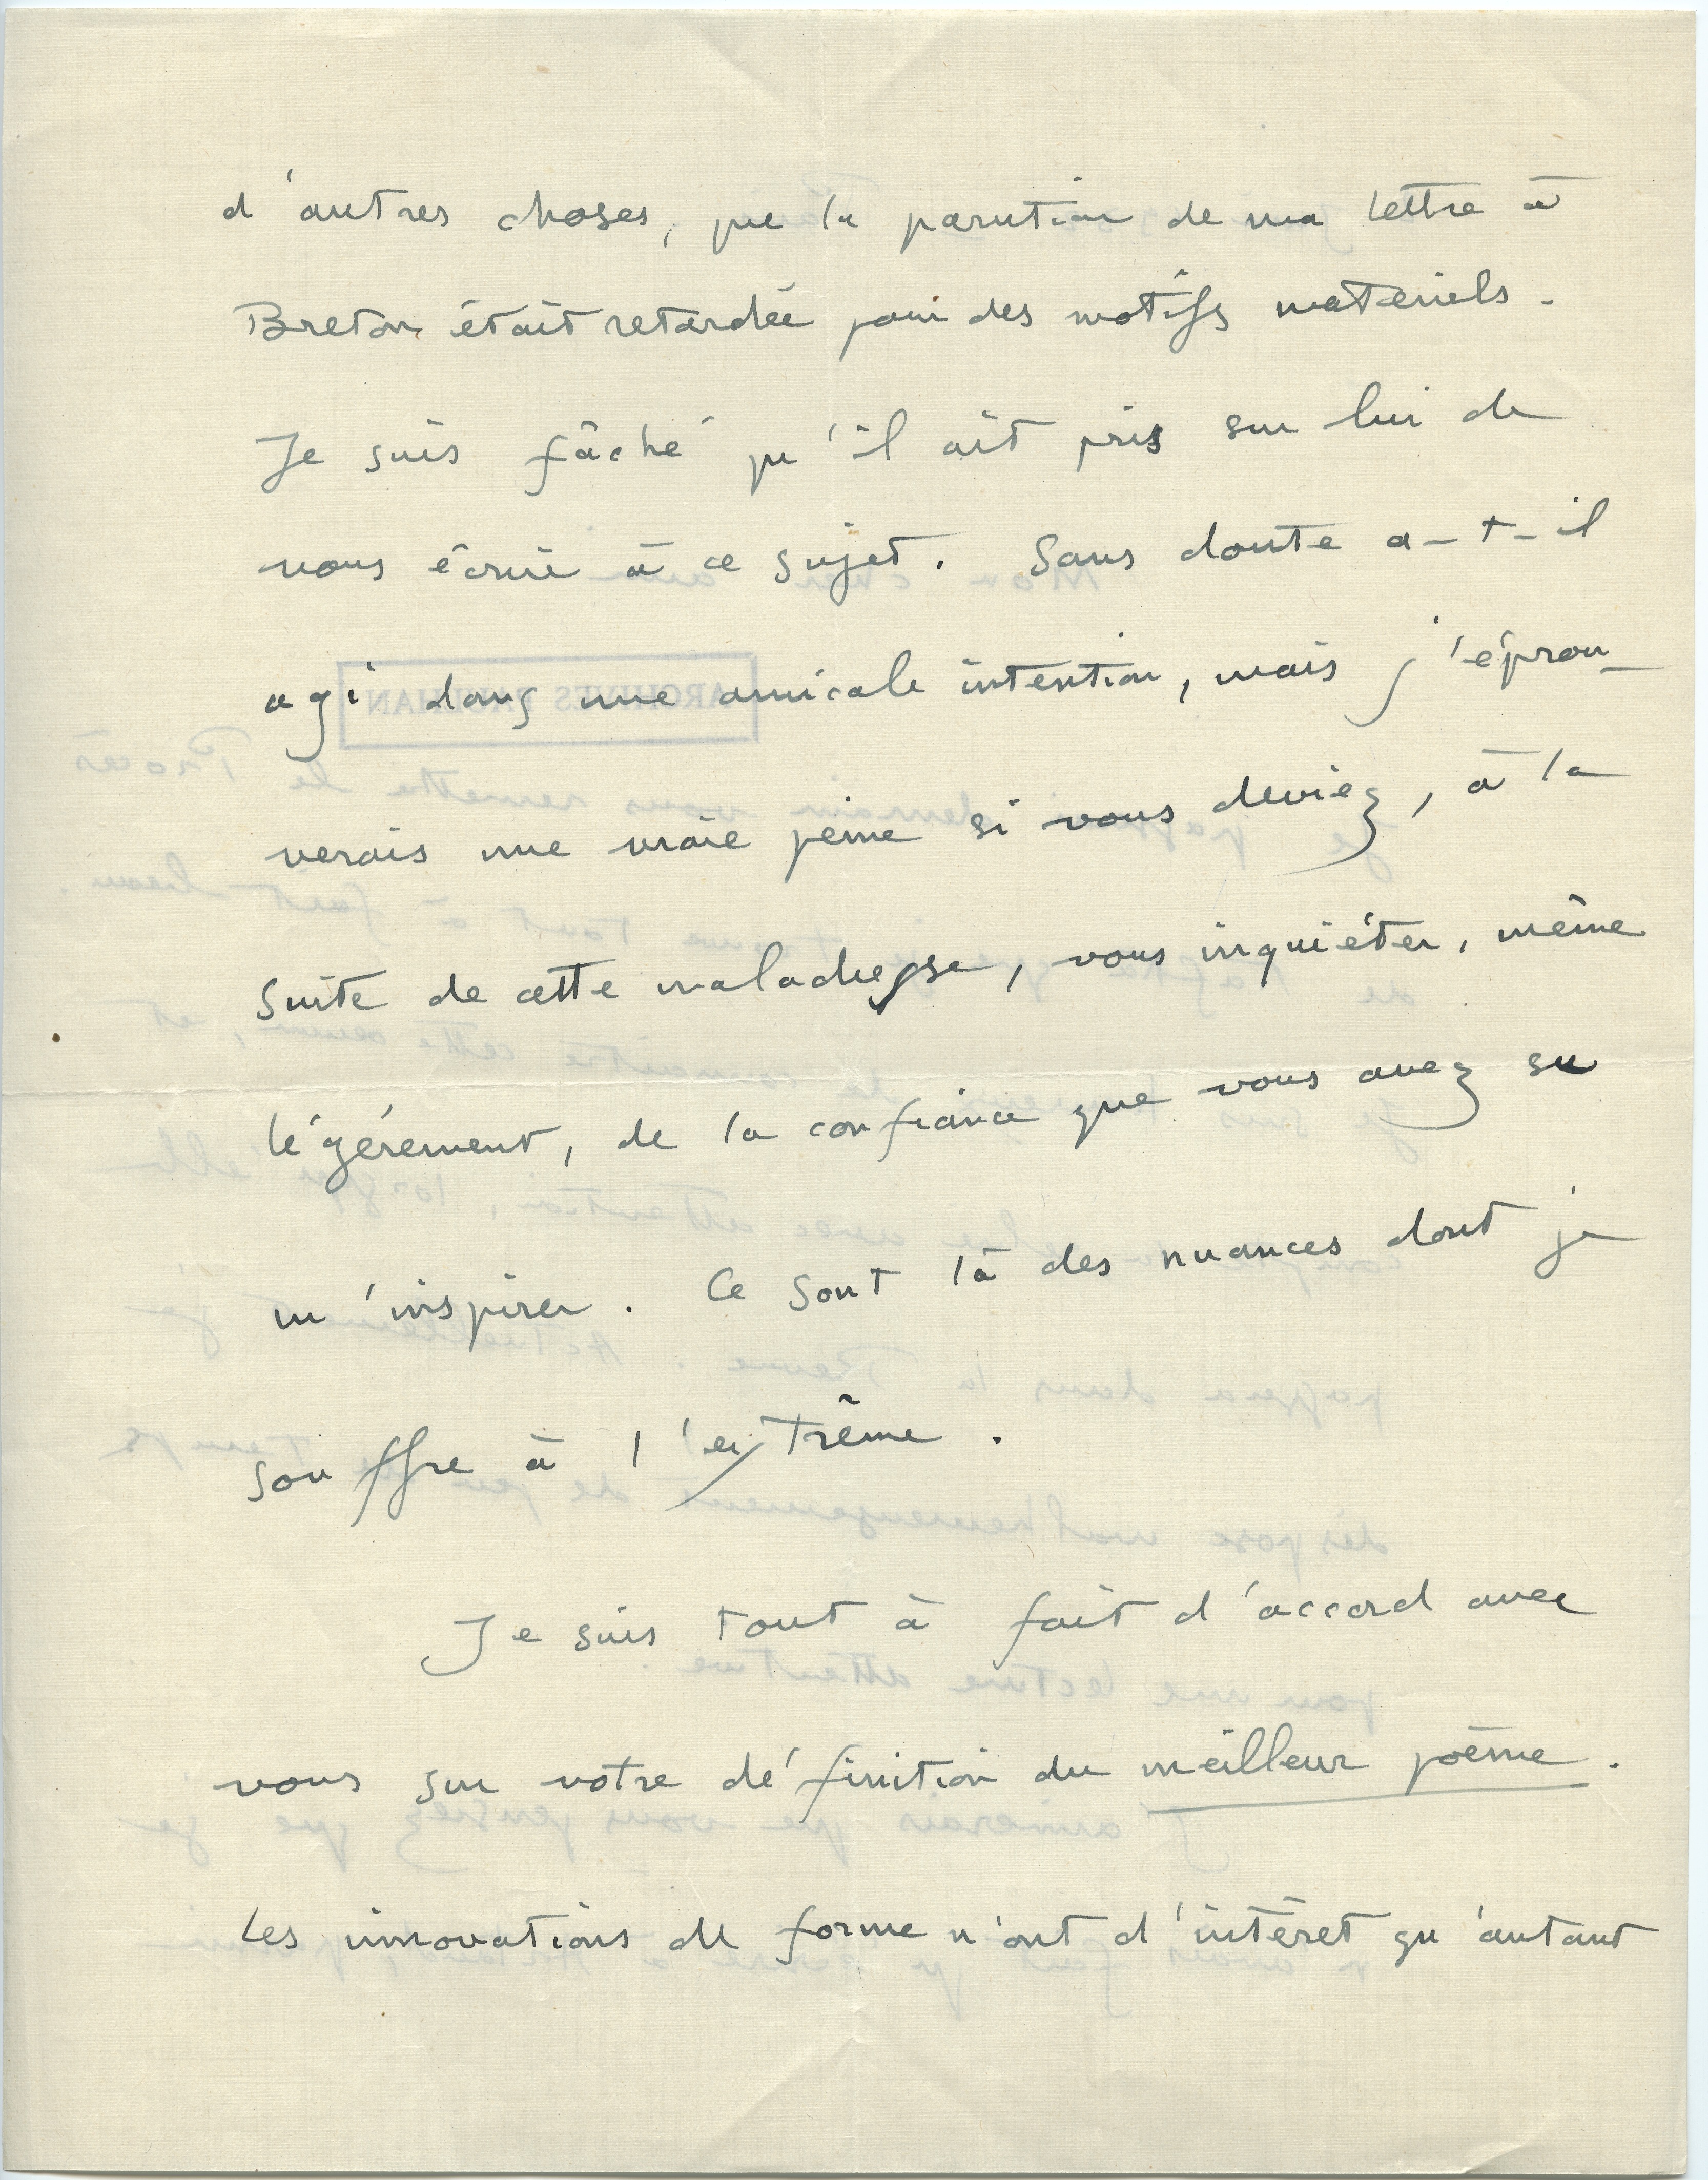 d'autres choses, que la parution de ma lettre à
Breton était retardée pour des motifs matériels.
Je suis fâché qu'il ait pris sur lui de
vous écrire à ce sujet. Sans doute a-t-il
agi dans une amicale intention, mais j'éprou-
verais une vraie peine si vous deviez, à la
suite de cette maladresse, vous inquiéter, même
légèrement, de la confiance que vous avez su
m'inspirer. Ce sont là des nuances dont je
souffre à l'extrême.
Je suis tout à fait d'accord avec
vous sur votre définition du meilleur poème.
Les innovations de forme n'ont d'intérêt qu'autant